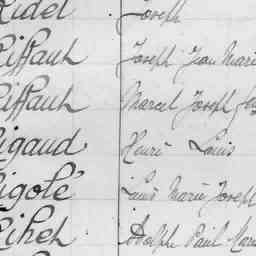 Ridel Joseph
Riffaut Joseph Jean Marie
Riffaut Marcel Joseph
Rigaud Henri Louis
Rigolé Louis Marie Joseph
Rihet Adolphe Paul Marie